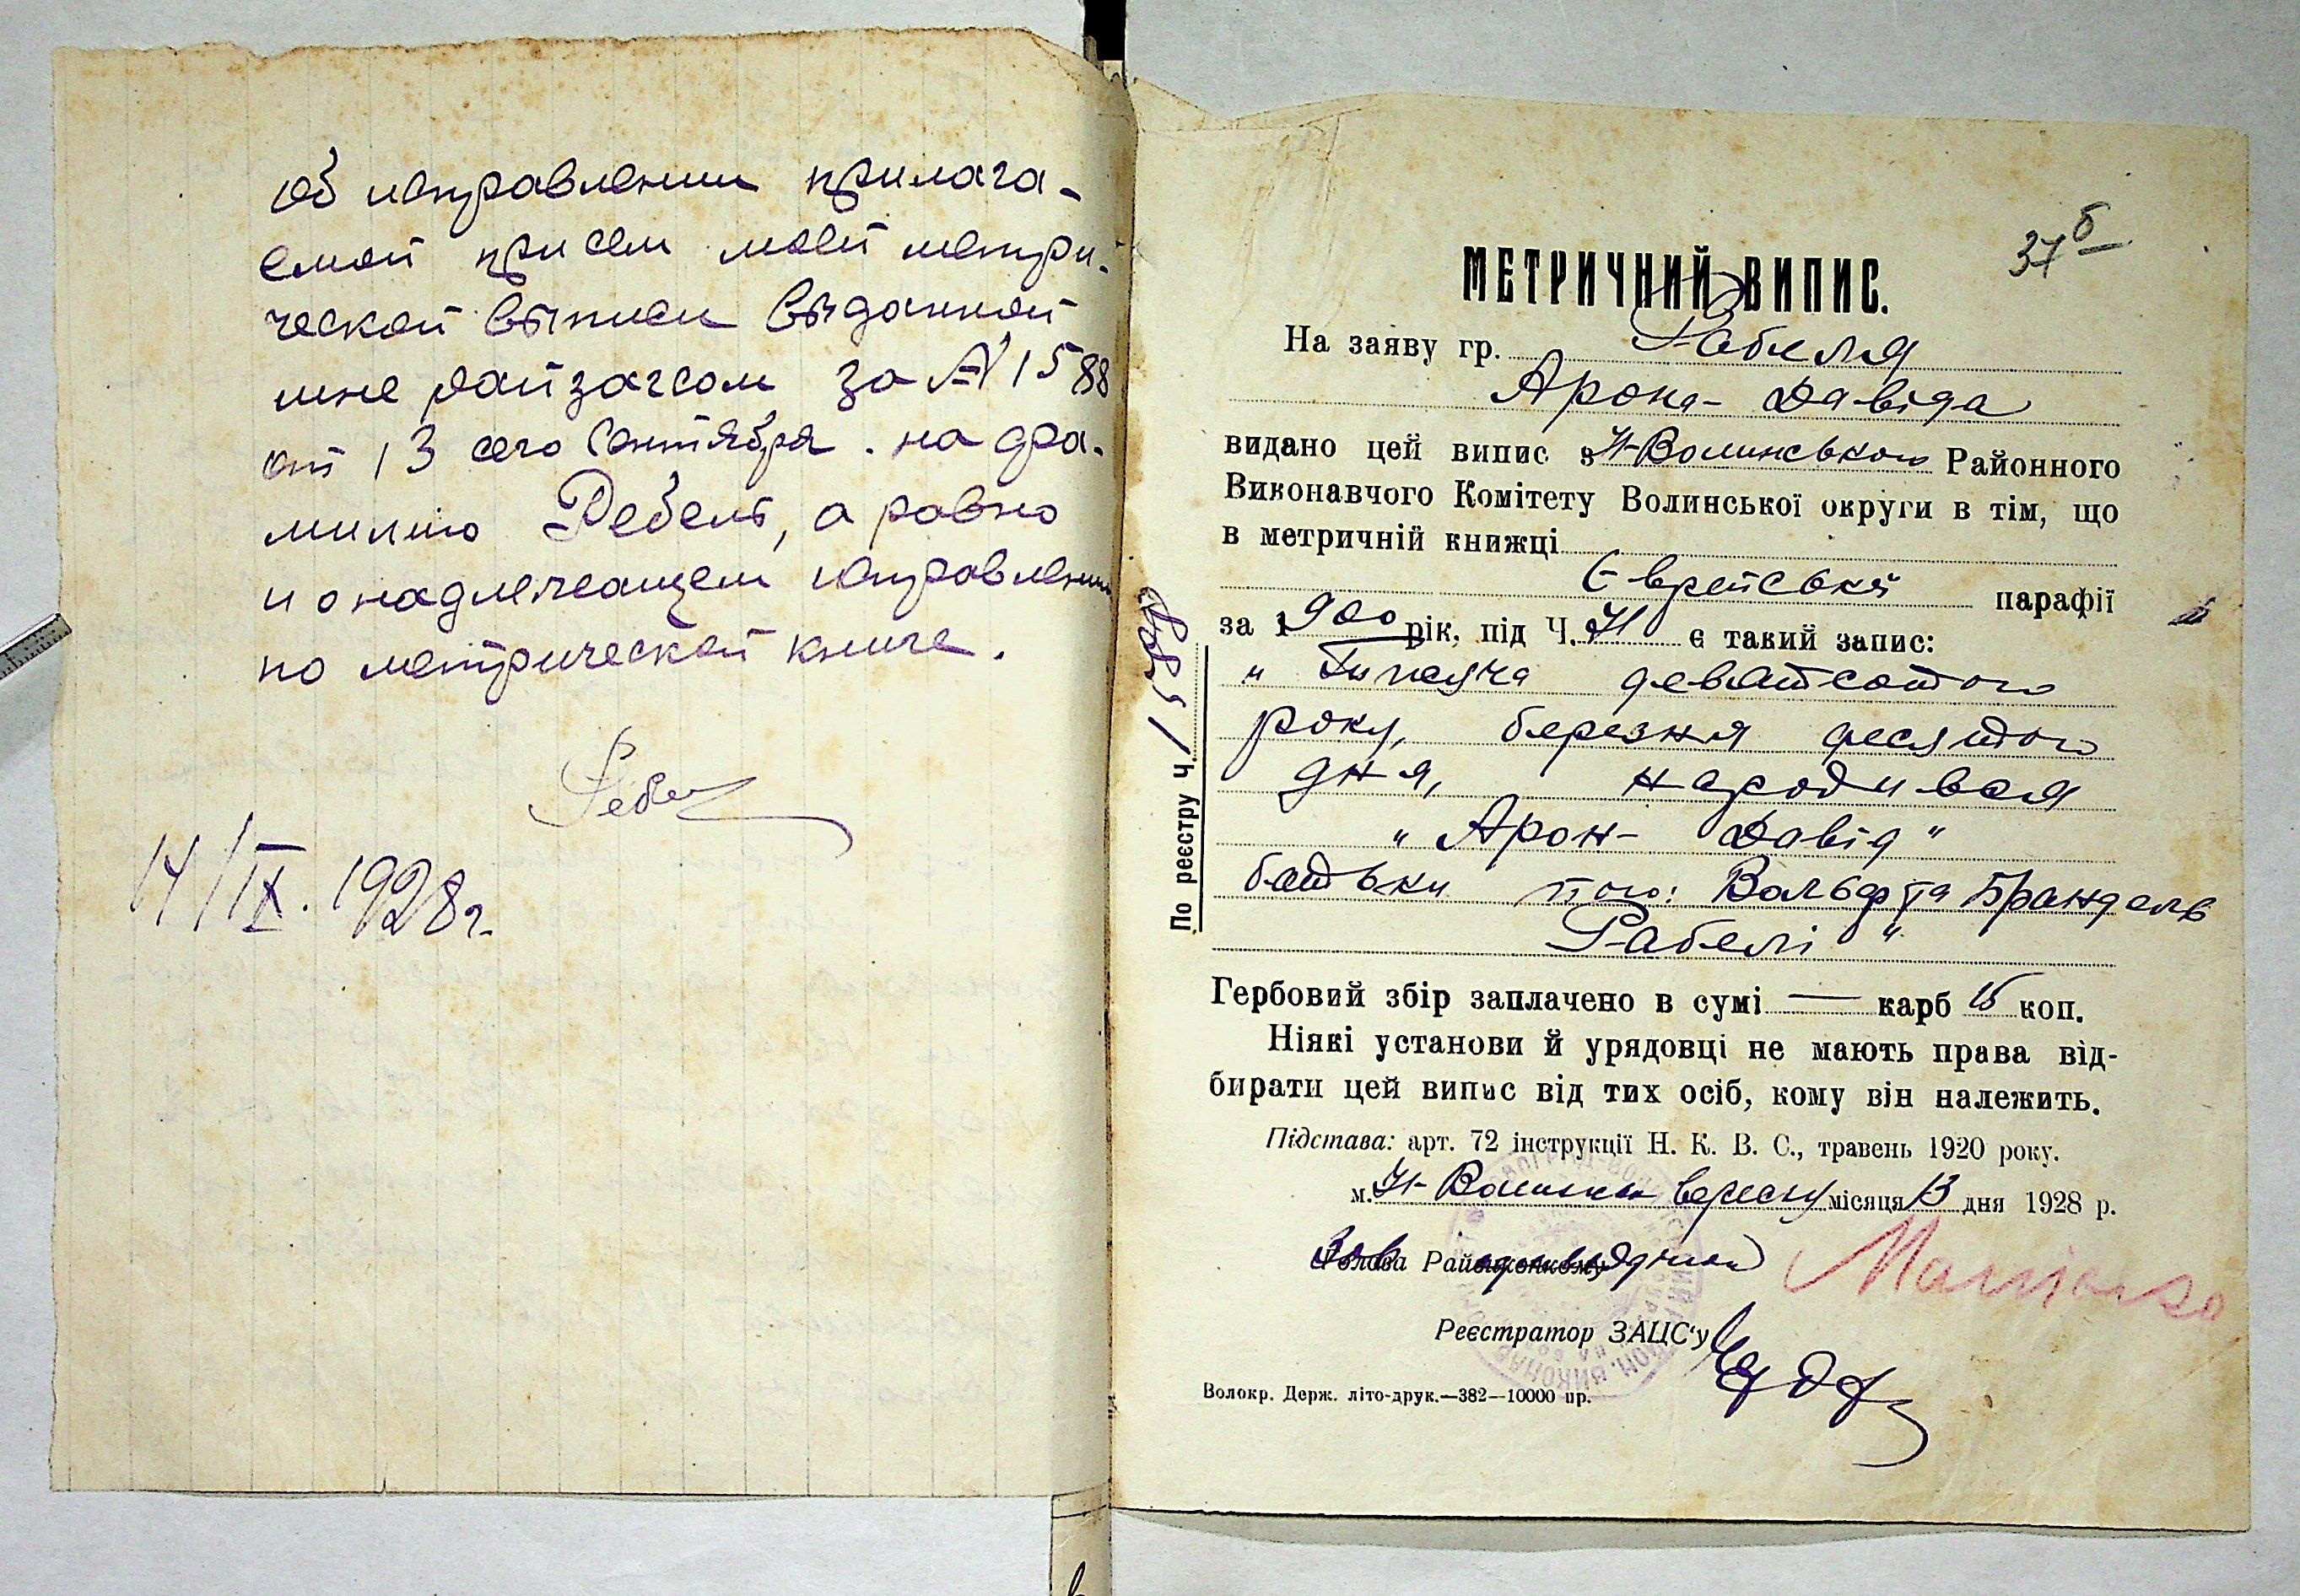 об исправлении прилага-
емой при сем моей метри-
ческой выписи выданной
мне райзагсом за № 1588
от 13 сего Сентября. на фа-
милию Ребель, а равно
и о надлежащем исправлении
по метрической книге.
Ребел
14/IX. 1928 г.
37 б
МЕТРИЧНИЙ ВИПИС.
На заяву гр. Рабеля
Арона-Давіда
видано цей випис з Н-Волинського Районного
Виконавчого Комітету Волинської округи в тім, що
в метричній книжці
Єврейської парафії
за 1900 рік, під Ч. 21 є такий запис:
„Тисяча девятсотого
року, березня десятого
дня, народився
„Арон-Давід"
батьки його: Вольф та Брандель
Рабелі"
Гербовий збір заплачено в сумі — карб 15 коп.
Ніякі установи й урядовці не мають права від-
бирати цей випис від тих осіб, кому він належить.
Підстава: арт. 72 інструкції Н. К. В. С., травень 1920 року.
м. Н-Волинськ вересня місяця 13 дня 1928 р.
Зав Рай
Реєстратор ЗАЦС'у
Волокр. Держ. літо-друк.—382—10000 пр.
По реєстру Ч. 1588